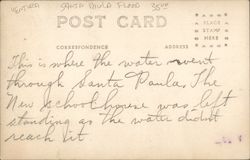 VENTURA SANTA PAULA FLOOD 35.00
POST CARD
PLACE
STAMP
HERE
CORRESPONDENCE ADDRESS
This is where the water went
through Santa Paula. The
New schoolhouse was left
standing as the water didnt
reach it